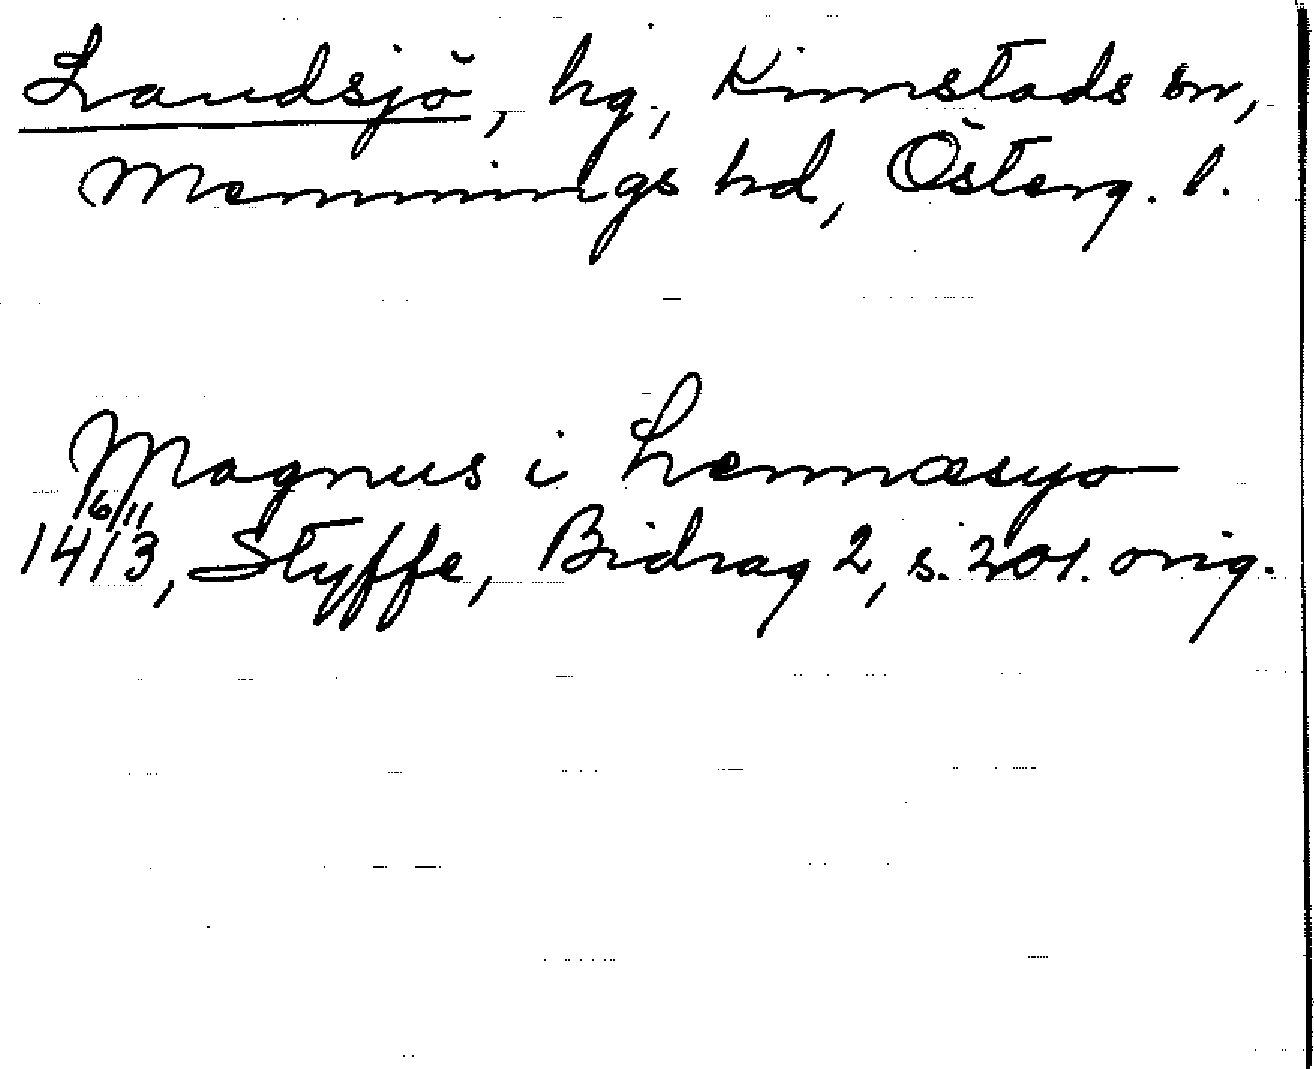 Landsjö, hg, Kimstads sn,
Memmings hd, Österg. l.
Magnus i Lennæsyo
6/11
1413, Styffe, Bidrag 2, s. 201. orig.